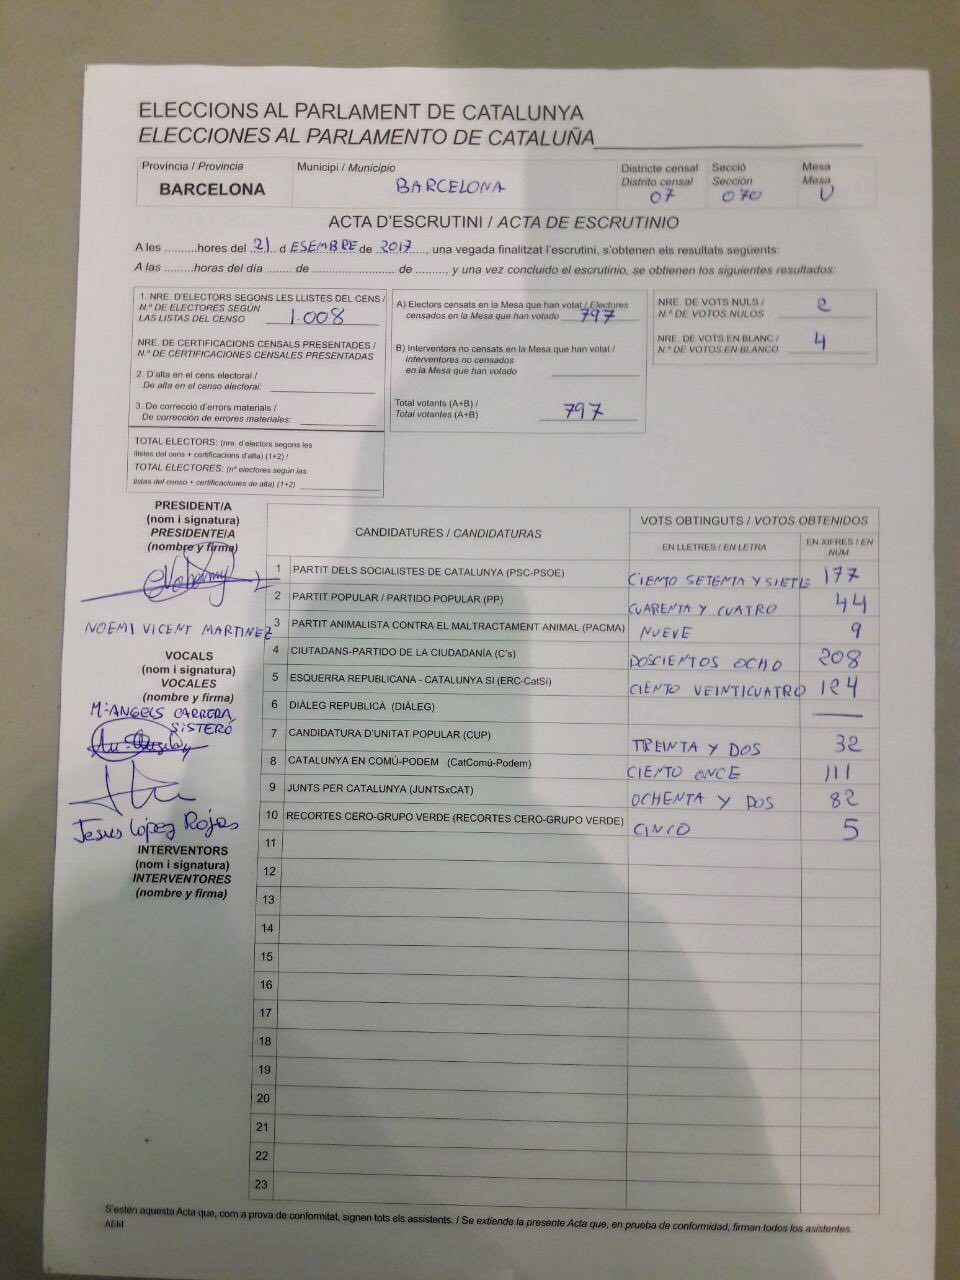 ELECCIONS AL PARLAMENT DE CATALUNYA
ELECCIONES AL PARLAMENTO DE CATALUÑA
Provincia / Provincia
BARCELONA
Municipi / Municipio
BARCELONA
Districte censal
Distrito censal
07
Secció
Sección
070
Mesa
Mesa
U
ACTA D'ESCRUTINI / ACTA DE ESCRUTINIO
A les ..........hores del 21 d ESEMBRE de 2017...., una vegada finalitzat l'escrutini, s'obtenen els resultats següents:
A las .........horas del día ....... de ........................ de ........., y una vez concluido el escrutinio, se obtienen los siguientes resultados:
1. NRE. D'ELECTORS SEGONS LES LLISTES DEL CENS /
N.º DE ELECTORES SEGÚN
LAS LISTAS DEL CENSO 1.008
NRE. DE CERTIFICACIONS CENSALS PRESENTADES /
N.º DE CERTIFICACIONES CENSALES PRESENTADAS
2. D'alta en el cens electoral /
De alta en el censo electoral:
3. De correcció d'errors materials /
De corrección de errores materiales:
TOTAL ELECTORS: (nre. d'electors segons les
llistes del cens + certificacions d'alta) (1+2) /
TOTAL ELECTORES: (nº electores según las
listas del censo + certificaciones de alta) (1+2)
A) Electors censats en la Mesa que han votat / Electores
censados en la Mesa que han votado 797
B) Interventors no censats en la Mesa que han votat /
Interventores no censados
en la Mesa que han votado
Total votants (A+B) /
Total votantes (A+B) 797
NRE. DE VOTS NULS /
N.º DE VOTOS NULOS 2
NRE. DE VOTS EN BLANC /
N.º DE VOTOS EN BLANCO 4
PRESIDENT/A
(nom i signatura)
PRESIDENTE/A
(nombre y firma)
NOEMI VICENT MARTINEZ
VOCALS
(nom i signatura)
VOCALES
(nombre y firma)
Mª ANGELS CARRERA
SISTERÓ
Jesus López Rojas
INTERVENTORS
(nom i signatura)
INTERVENTORES
(nombre y firma)
CANDIDATURES / CANDIDATURAS
VOTS OBTINGUTS / VOTOS OBTENIDOS
EN LLETRES / EN LETRA
EN XIFRES / EN
NUM.
1 PARTIT DELS SOCIALISTES DE CATALUNYA (PSC-PSOE) CIENTO SETENTA Y SIETE 177
2 PARTIT POPULAR / PARTIDO POPULAR (PP) CUARENTA Y CUATRO 44
3 PARTIT ANIMALISTA CONTRA EL MALTRACTAMENT ANIMAL (PACMA) NUEVE 9
4 CIUTADANS-PARTIDO DE LA CIUDADANÍA (C's) DOSCIENTOS OCHO 208
5 ESQUERRA REPUBLICANA - CATALUNYA SI (ERC-CatSí) CIENTO VEINTICUATRO 124
6 DIÀLEG REPUBLICÀ (DIÀLEG)
7 CANDIDATURA D'UNITAT POPULAR (CUP) TREINTA Y DOS 32
8 CATALUNYA EN COMÚ-PODEM (CatComú-Podem) CIENTO ONCE 111
9 JUNTS PER CATALUNYA (JUNTSxCAT) OCHENTA Y DOS 82
10 RECORTES CERO-GRUPO VERDE (RECORTES CERO-GRUPO VERDE) CINCO 5
11
12
13
14
15
16
17
18
19
20
21
22
23
S'estén aquesta Acta que, com a prova de conformitat, signen tots els assistents. / Se extiende la presente Acta que, en prueba de conformidad, firman todos los asistentes.
AEM